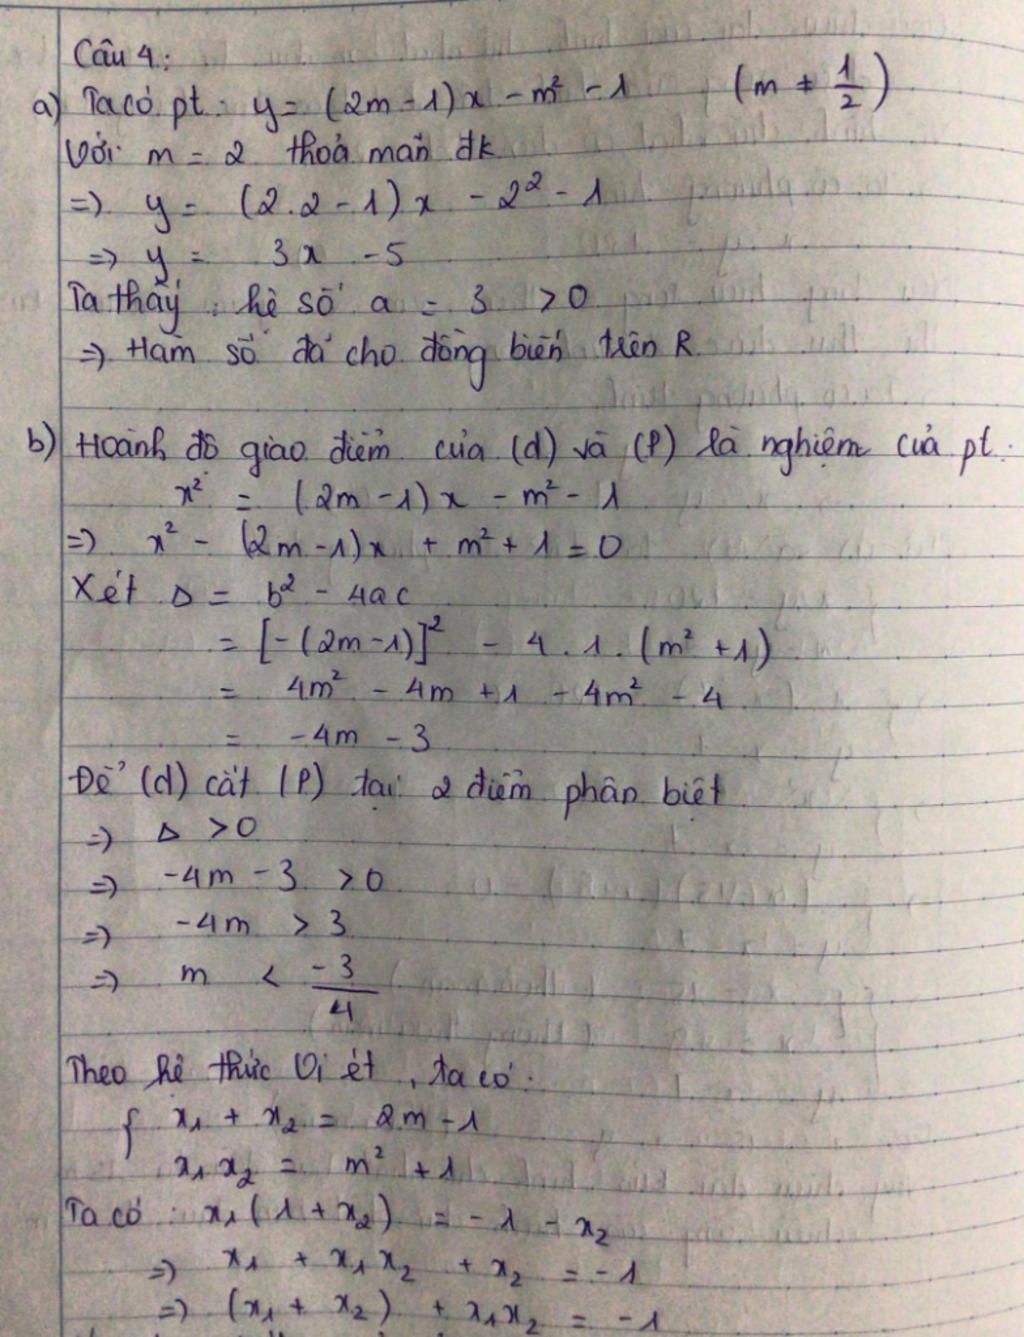 Câu 4:
a) Ta có pt: y = (2m - 1)x - m² - 1 (m ≠ 1/2)
Với m = 2 thoả mãn đk
=> y = (2.2 - 1)x - 2² - 1
=> y = 3x - 5
Ta thấy: hệ số a = 3 > 0
=> Hàm số đã cho đồng biến trên R
b) Hoành độ giao điểm của (d) và (P) là nghiệm của pt:
x² = (2m - 1)x - m² - 1
=> x² - (2m - 1)x + m² + 1 = 0
Xét Δ = b² - 4ac
= [-(2m - 1)]² - 4 . 1 . (m² + 1)
= 4m² - 4m + 1 - 4m² - 4
= -4m - 3
Để (d) cắt (P) tại 2 điểm phân biệt
=> Δ > 0
=> -4m - 3 > 0
=> -4m > 3
=> m < -3/4
Theo hệ thức Vi ét, ta có:
{ x₁ + x₂ = 2m - 1
x₁ x₂ = m² + 1
Ta có: x₁(1 + x₂) = -1 - x₂
=> x₁ + x₁x₂ + x₂ = -1
=> (x₁ + x₂) + x₁x₂ = -1